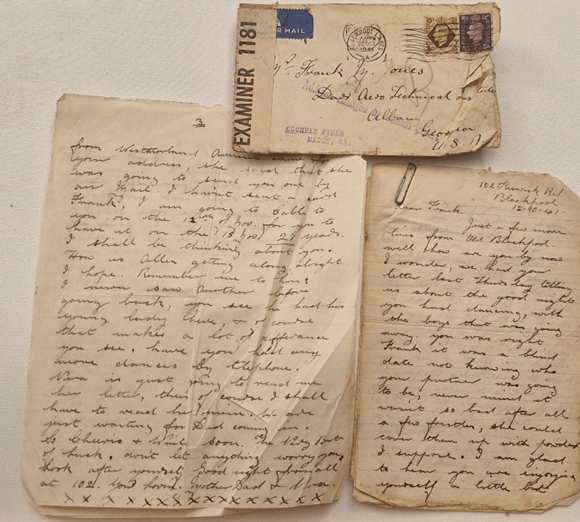 EXAMINER 1181
AIR MAIL
BLACKPOOL, LANCS
1941
Mr. Frank M. Jones
Darr Aero Technical
Albany
Georgia
U. S. A
COCHRAN FIELD
MACON, GA.
3
from Westmorland
your address, she said that she
was going to send you one by
air Mail. I haven't sent a card
Frank, I am going to Cable to
you on the 12th of Nov. for you to
have it on the 13 Nov 21 years.
I shall be thinking about you.
How is Allen getting along, alright
I hope. Remember me to him
I never saw before
going back, you see he had his
young lady here, & of course
that makes a lot of difference
you see, have you had any
more dances by telephone.
Vera is just going to read me
her letter, then of course I shall
have to read her mine. We are
just waiting for Dad coming in.
So Cheerio & Write soon. The Very Best
of luck, don't let anything worry you
Look after yourself. Good night from all
at 102. Your loving Mother Dad & Vera.
x x x x x x x x x x x x x x x x
102 Rd
Blackpool
12-10-41
Dear Frank.
Just a few more
lines from Old Blackpool.
well how are you by now
I wonder, we had your
letter last Thursday telling
us about the good night
you had dancing, with
the boys that was going
away, you was right
Frank it was a blind
date not knowing who
your partner was going
to be, never mind it
wasnt so bad after all
a few freckles, she could
cover them up with powder
I suppose. I am glad
to hear you are enjoying
yourself a little bit